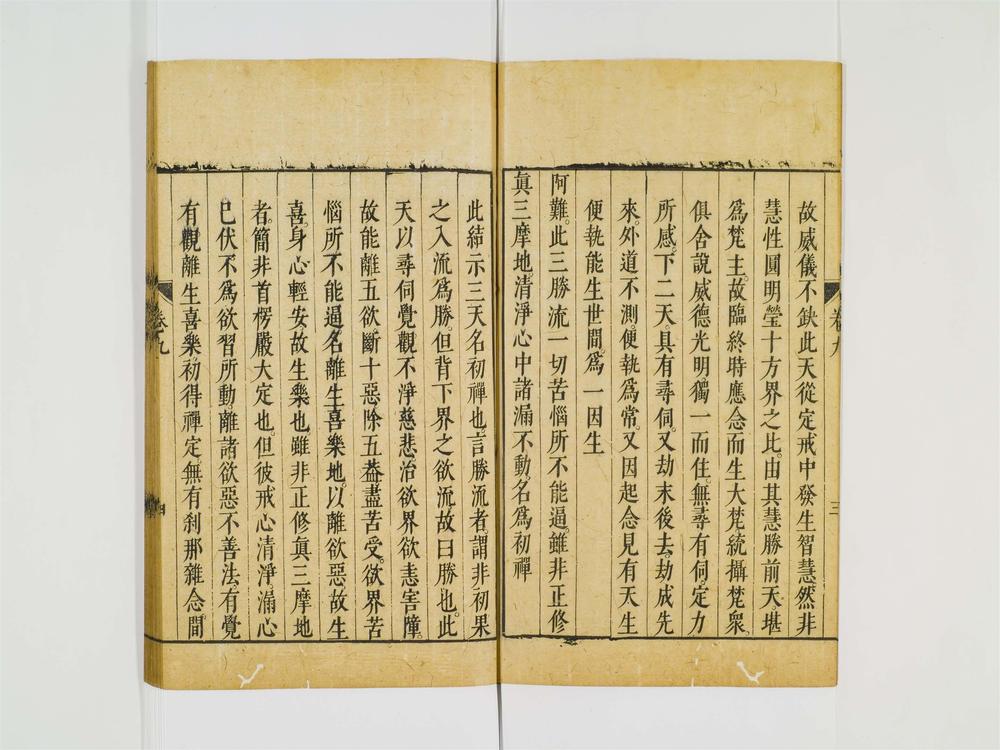 故威儀不缺此天從定戒中發生智慧然非
慧性圓明瑩十方界之比由其慧勝前天堪
爲梵主故臨終時應念而生大梵統攝梵衆
俱舍說威德光明獨一而住無尋有伺定力
所感下二天具有尋伺又劫末後去劫成先
來外道不測便執爲常又因起念見有天生
便執能生世間爲一因生
阿難此三勝流一切苦惱所不能逼雖非正修
眞三摩地清淨心中諸漏不動名爲初禪
此結示三天名初禪也言勝流者謂非初果
之入流爲勝但背下界之欲流故曰勝也此
天以尋伺覺觀不淨慈悲治欲界欲恚害障
故能離五欲斷十惡除五葢盡苦受欲界苦
惱所不能逼名離生喜樂地以離欲惡故生
喜身心輕安故生樂也雖非正修眞三摩地
者簡非首楞嚴大定也但彼戒心清淨漏心
已伏不爲欲習所動離諸欲惡不善法有覺
有觀離生喜樂初得禪定無有刹那雜念間
卷九
三
卷九
四